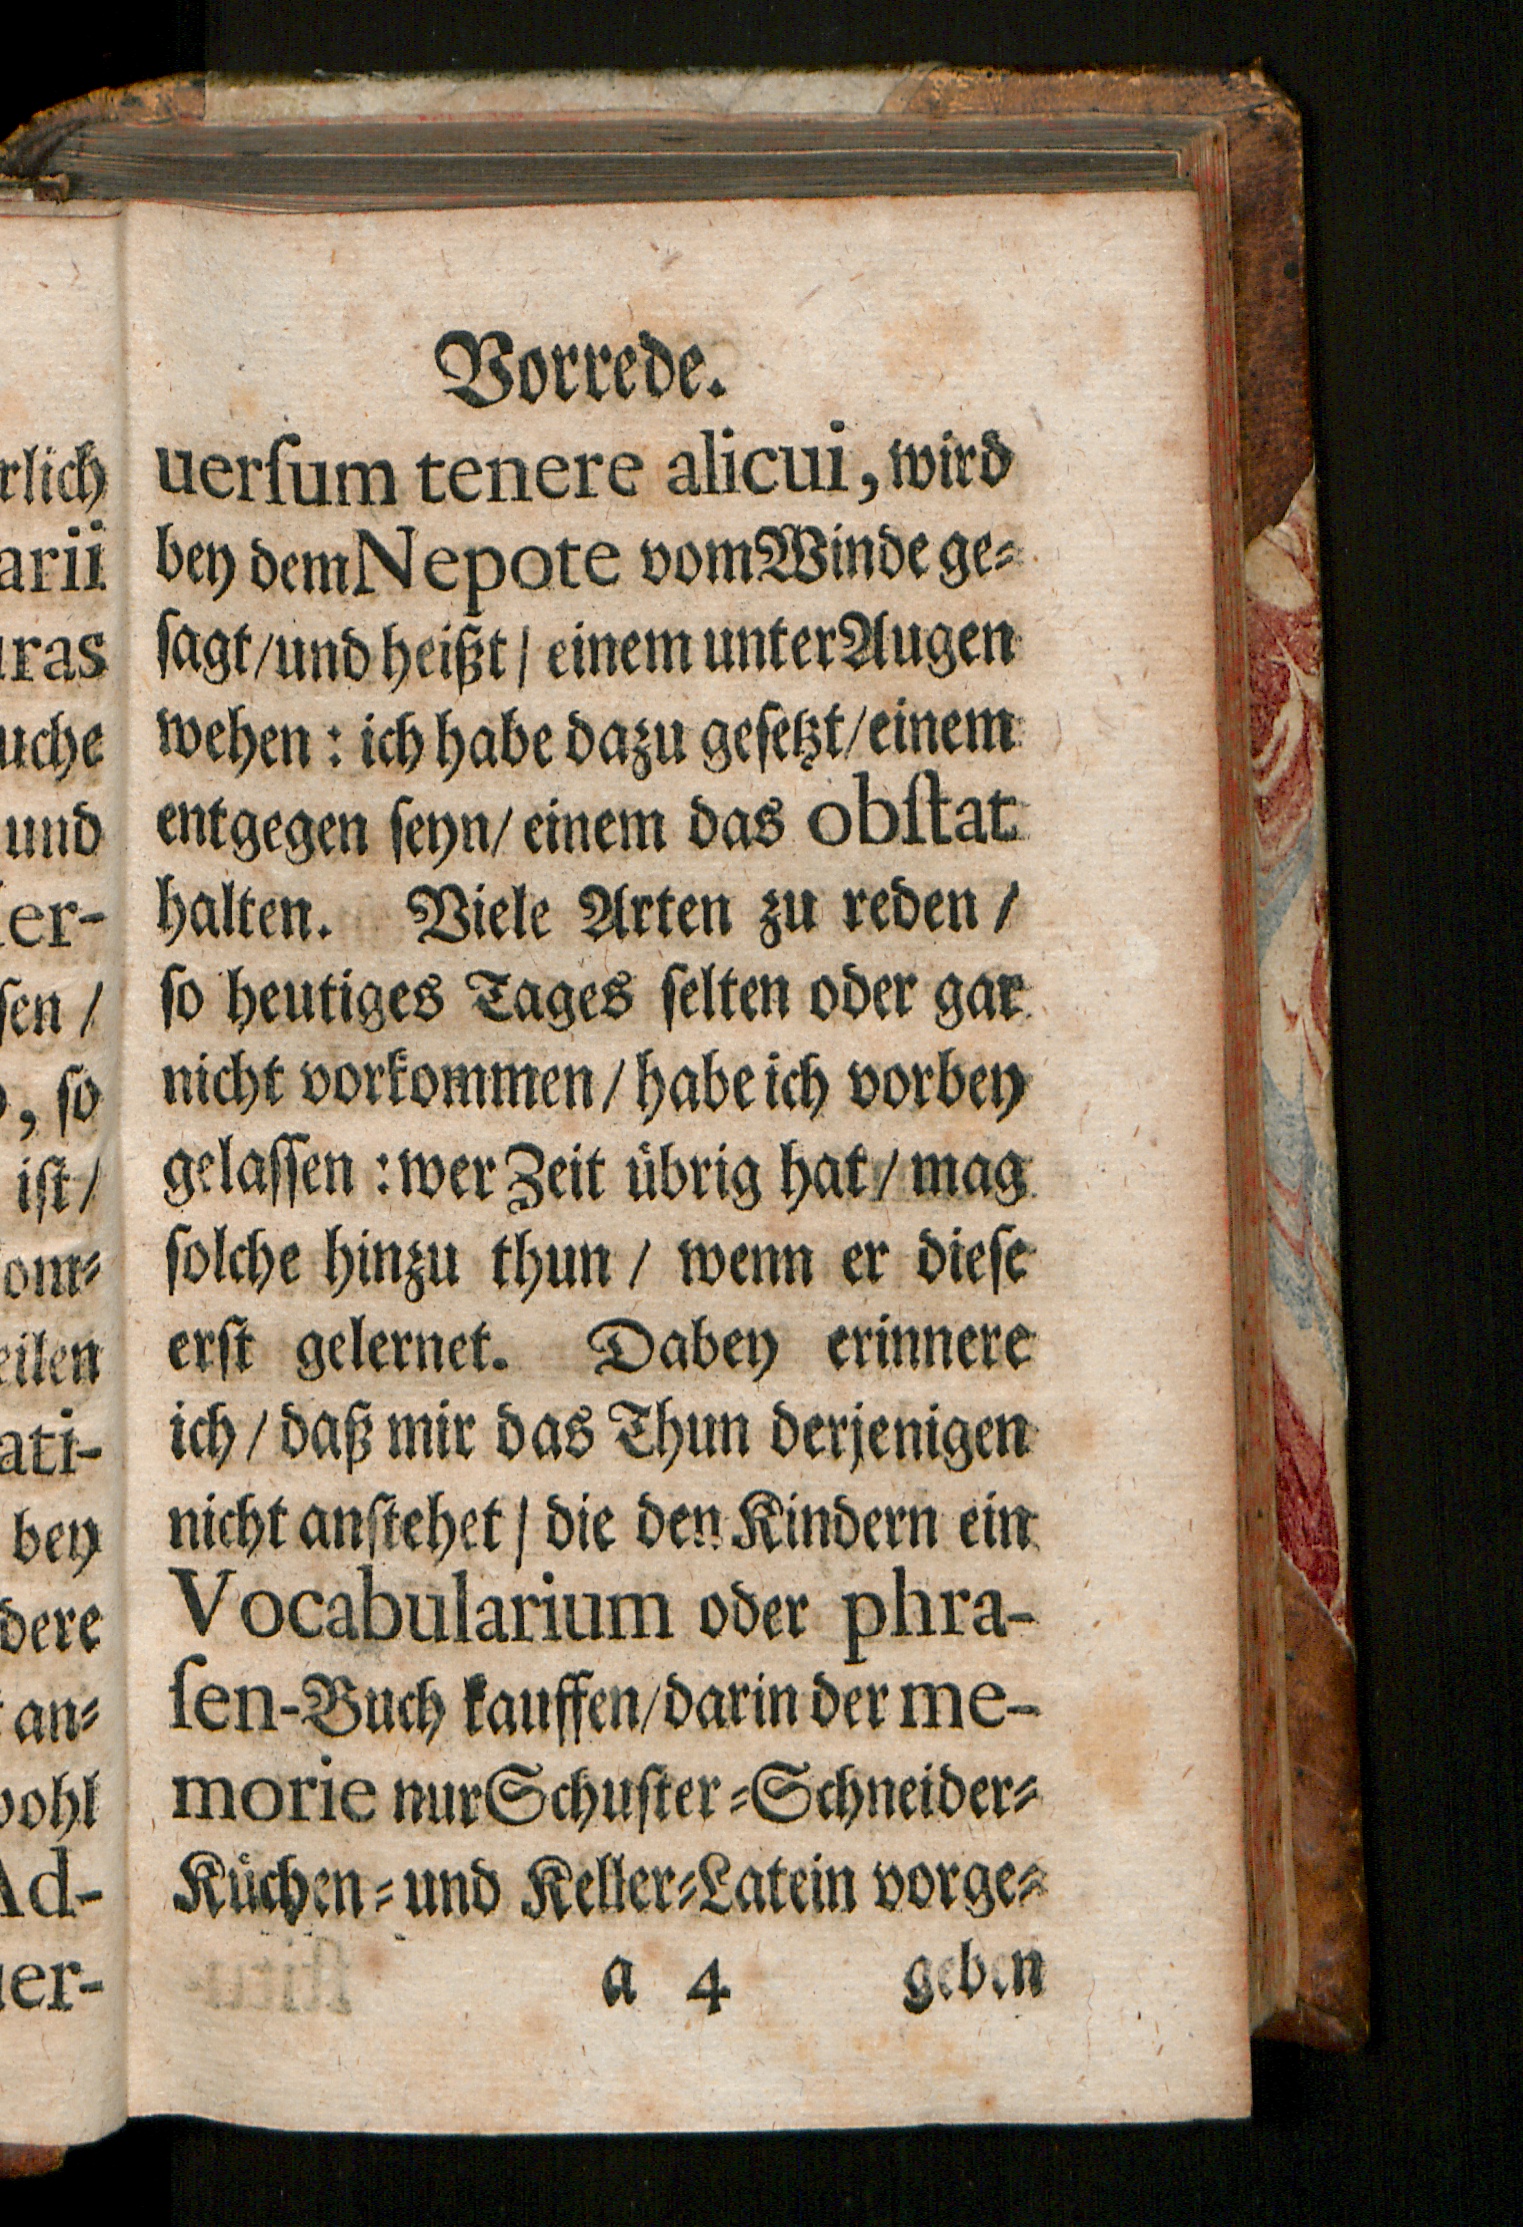 Vorrede.
uerſum tenere alicui, wird
bey dem Nepote vom Winde ge⸗
ſagt/und heißt/ einem unter Augen
wehen: ich habe dazu geſetzt/einem
entgegen ſeyn/ einem das obſtat
halten. Viele Arten zu reden/
ſo heutiges Tages ſelten oder gar
nicht vorkommen/ habe ich vorbey
gelaſſen: wer Zeit übrig hat/ mag
ſolche hinzu thun/ wenn er dieſe
erſt gelernet. Dabey erinnere
ich/ daß mir das Thun derjenigen
nicht anſtehet/ die den Kindern ein
Vocabularium oder phra-
ſen-Buch kauffen/darin der me-
morie nur Schuſter⸗Schneider⸗
Küchen⸗und Keller⸗Latein vorge⸗
a 4 geben